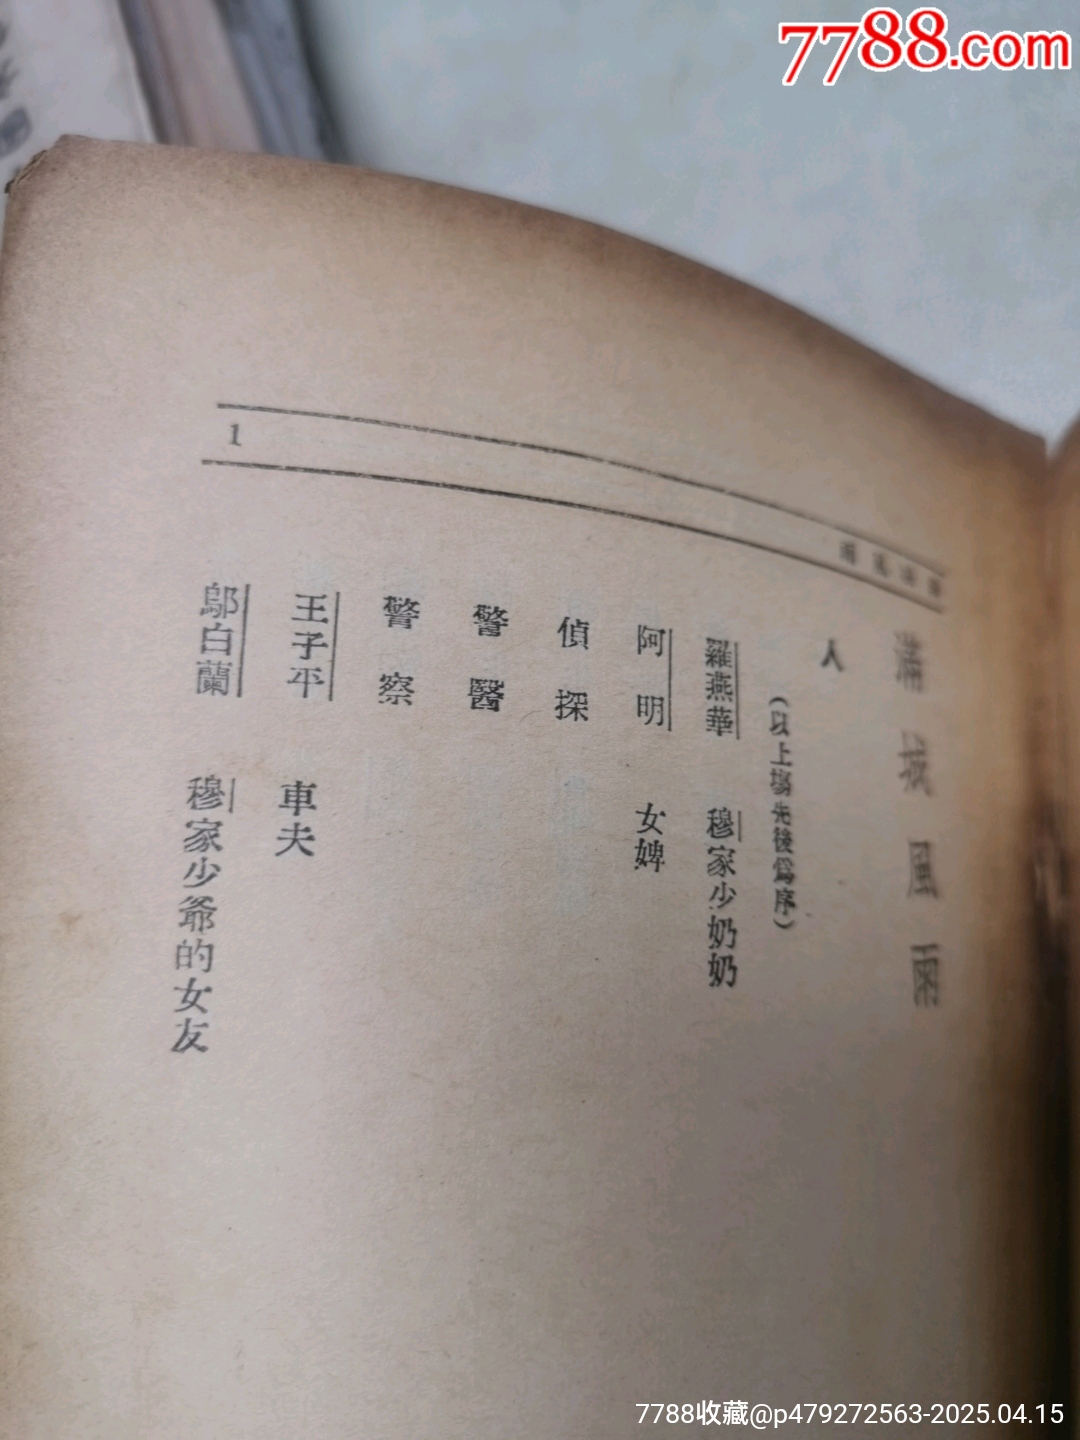 7788.com
1
滿城風雨
人
(以上場先後爲序)
羅燕華 穆家少奶奶
阿明 女婢
偵探
警醫
警察
王子平 車夫
鄔白蘭 穆家少爺的女友
7788收藏@p479272563-2025.04.15